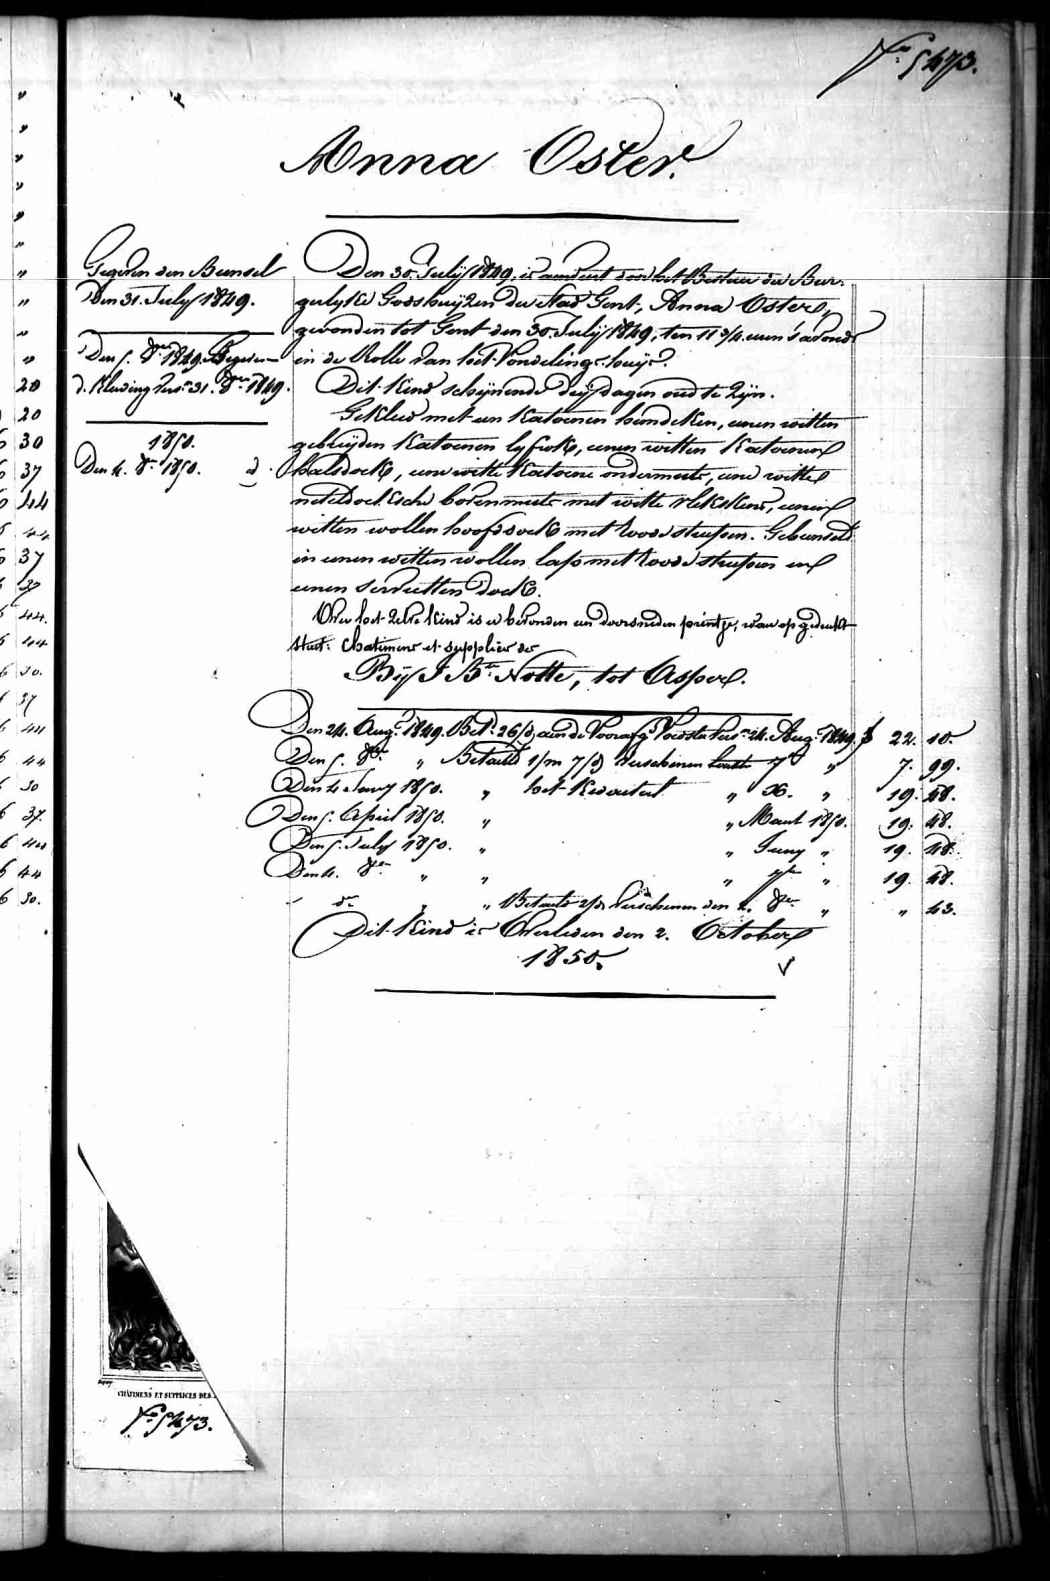 N.º 5473.
Anna Oster.
Gegeven den Bunsel
Den 31. July 1849.
Den 5. 8bre 1849. Gegeven
d. Kleeding vers. 31. 8bre 1849.
1850.
Den 4. 8re 1850. d.
Den 30. July 1849, is aanveert door het Bestuer der Bur-
gerlyke Godshuijzen der Stad Gent, Anna Oster,
gevonden tot Gent den 30. July 1849, ten 11 3/4 uren 's avonds
in de Rolle van het Vondelings-huijs.
Dit Kind schijnende drij dagen oud te Zijn.
Gekleed met een Katoenen hemdeken, eenen witten
gebrijden Katoenen lyfrok, eenen witten Katoenen
halsdoek, eene witte Katoene ondermuts, eene witte
neteldoeksche bovenmuts met witte vlekskens, eenen
witten wollen hoofddoek met roode streepen. Gebunseld
in eenen witten wollen lap met roode streepen en
eenen servietten doek.
Over het Zelve Kind is er bevonden een doorsneden printje, waer op gedrukt
staet: Chatimens et supplices des
Bij J. Bte Notte, tot Asper.
Den 24. Aug. 1849. Bet. 26/d aen de Voorafg. Voedster vers. 24. Aug. 1849. f 22. 10.
Den 5. 8bre " Betaeld 1/m 7/d Verschenen 7bre " 7. 99.
Den 4 Janry 1850. " het Kwartael " X. " 19. 48.
Den 5. April 1850. " " Maert 1850. 19. 48.
Den 5. July 1850. " " Juny " 19. 48.
Den 4. 8bre " " " 7bre " 19. 48.
do " " Betaeld 2/d Verschenen den 2. 8bre " " 43.
Dit Kind is Overleden den 2. October
1850.
CHÂTIMENS ET SUPPLICES DES
N.º 5473.
20
20
30
37
44
44
37
37
44.
44
30.
37
44
44
30
37.
44
44
30.